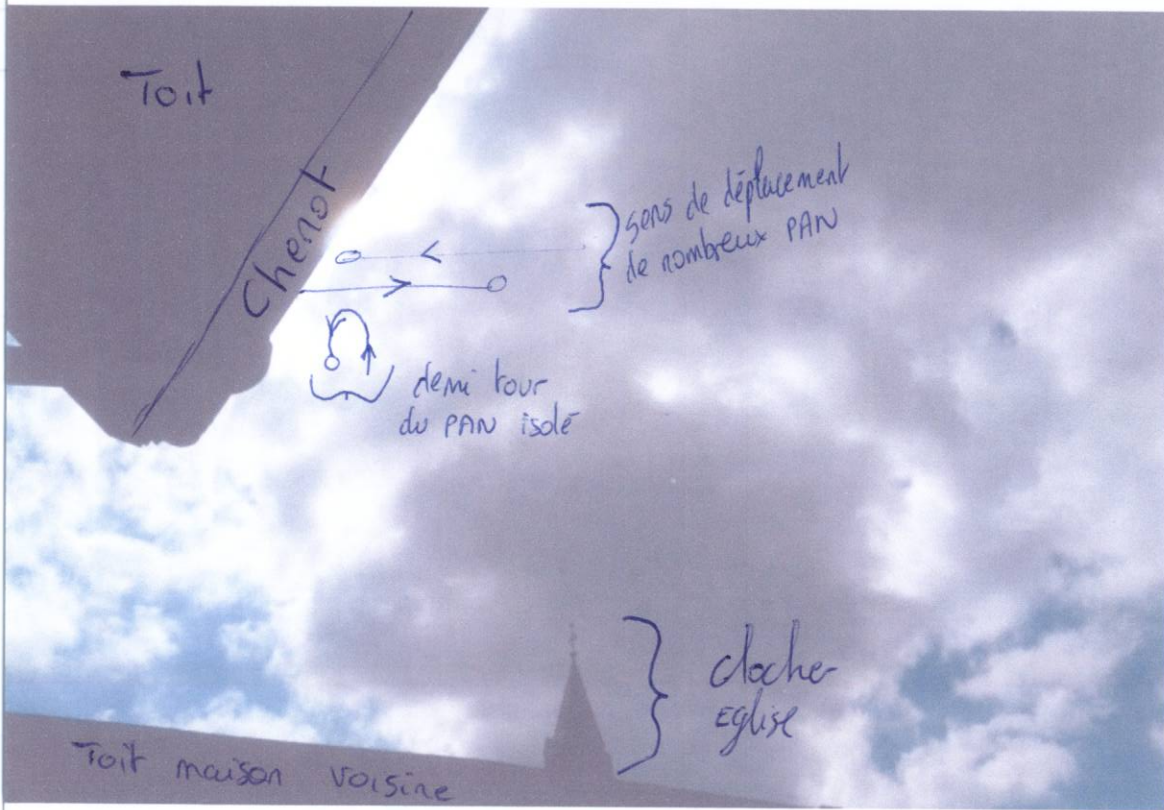 Toit
Chenot
sens de déplacement
de nombreux PAN
demi tour
du PAN isolé
clocher
Eglise
Toit maison voisine